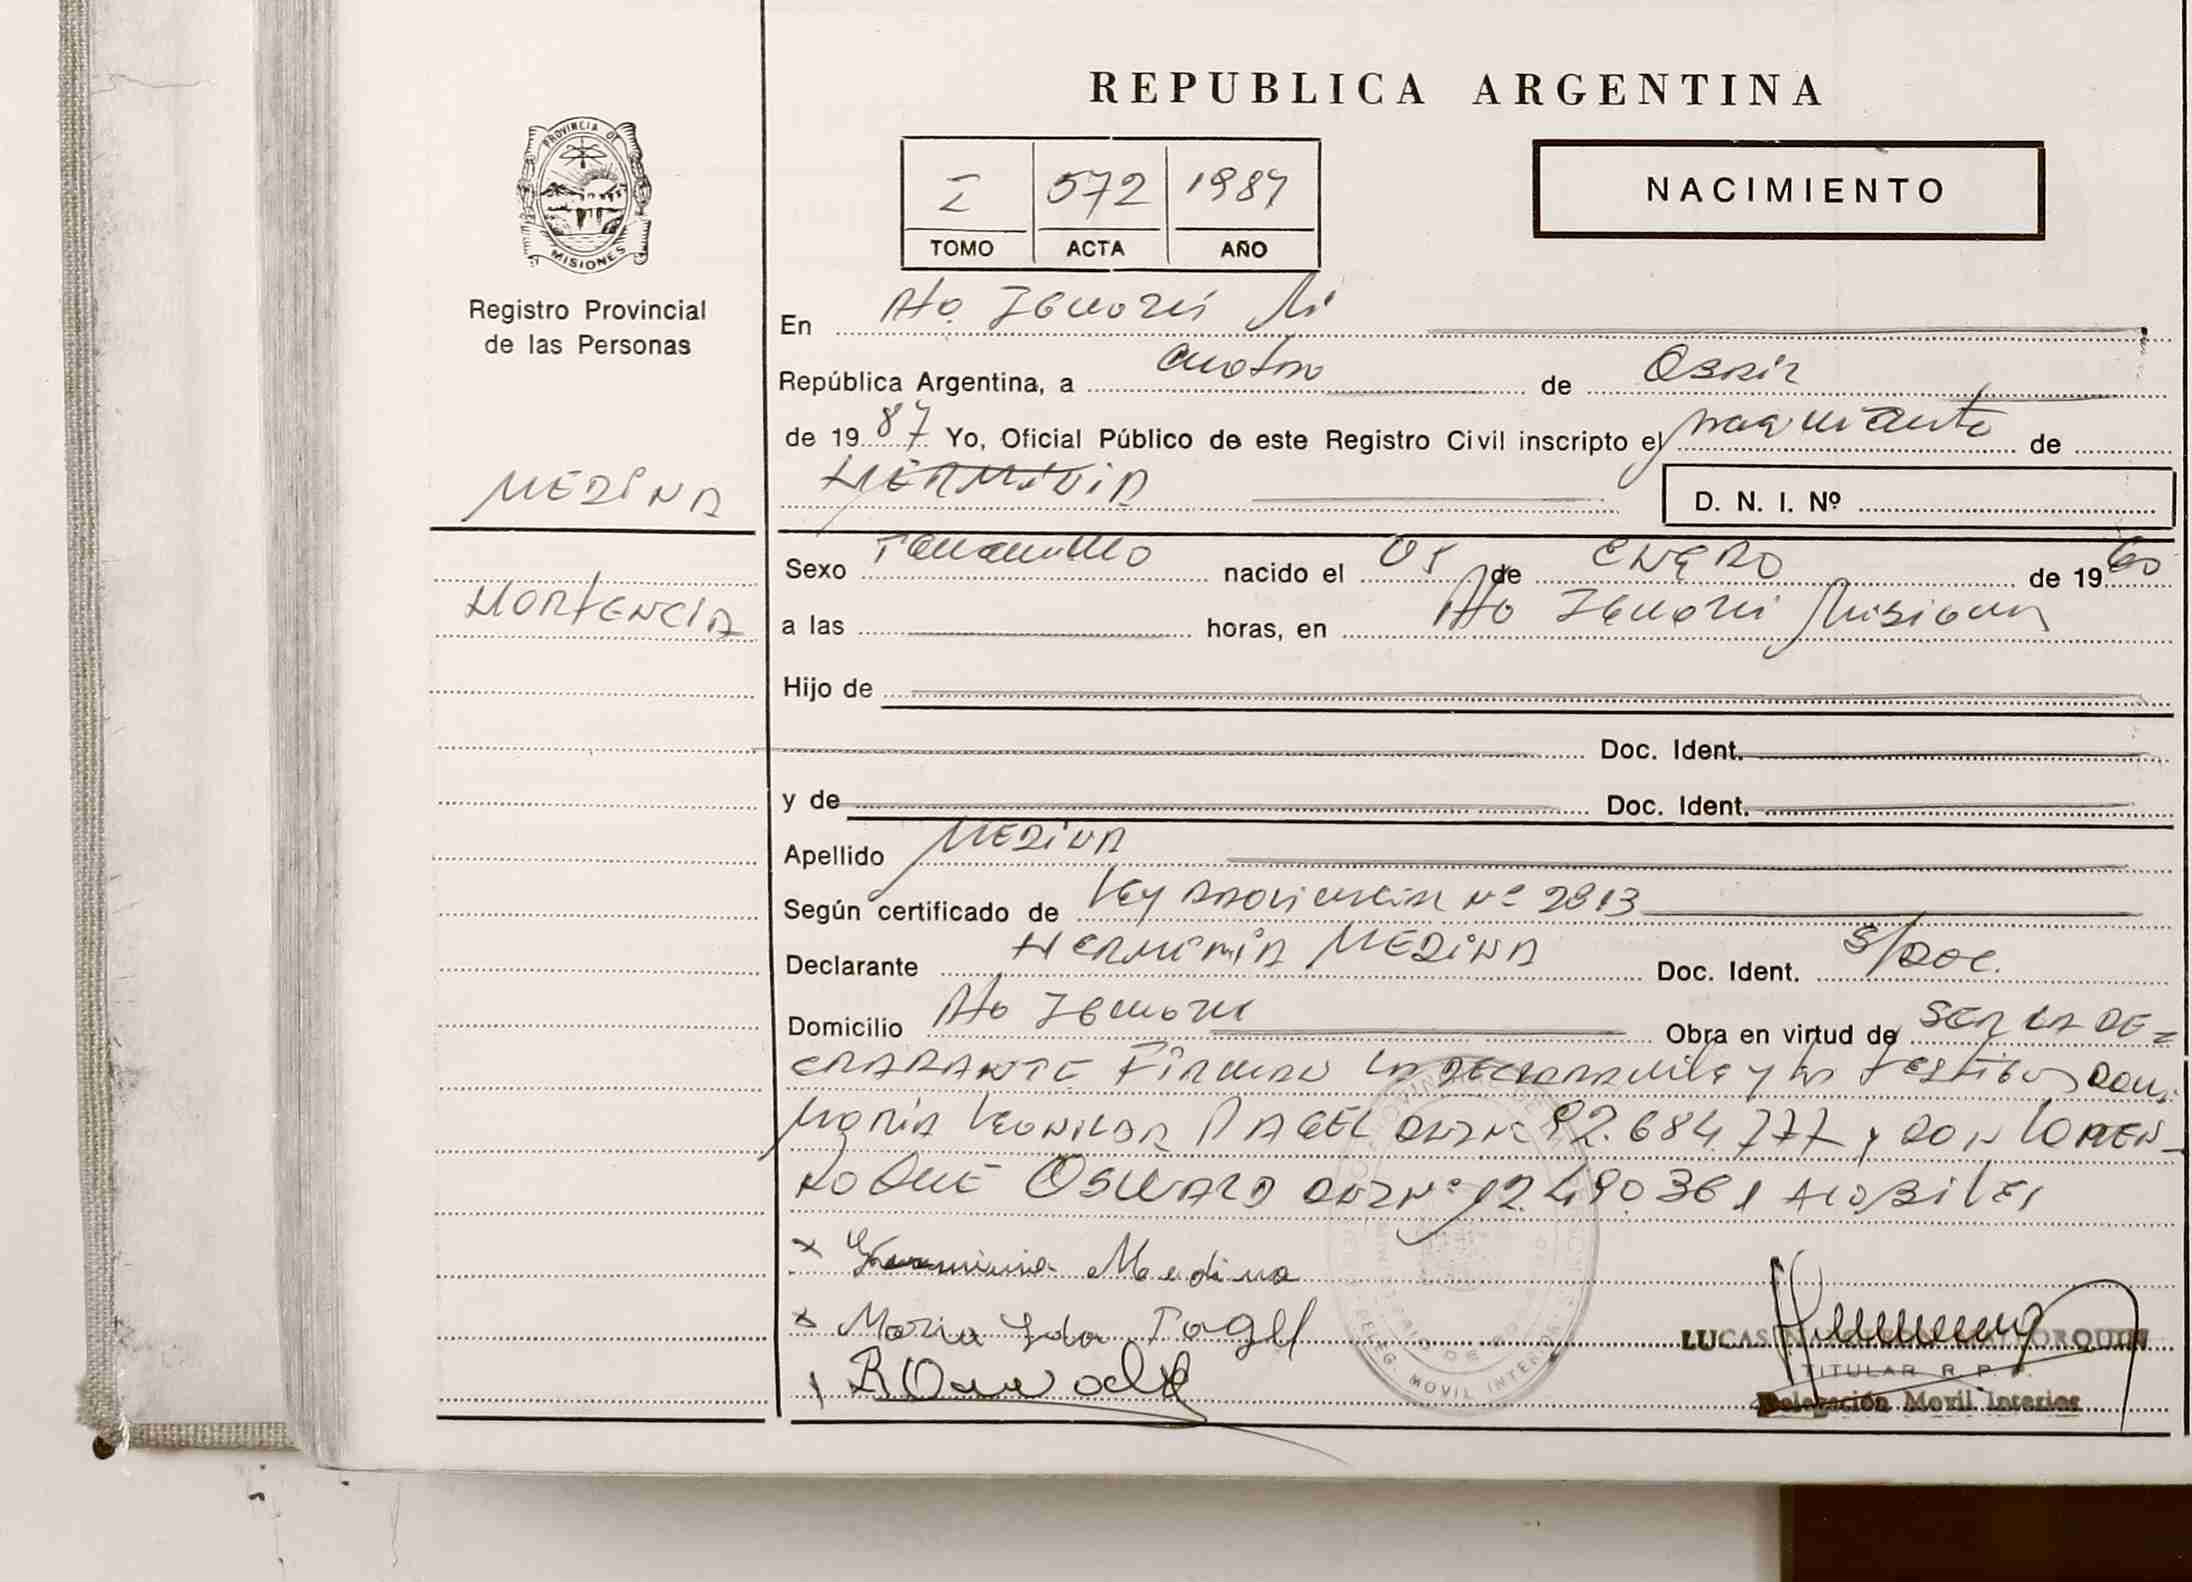 REPUBLICA ARGENTINA
PROVINCIA DE
MISIONES
Registro Provincial
de las Personas
I 572 1987
TOMO ACTA AÑO
NACIMIENTO
En Pto
República Argentina, a cuatro de Abril
de 1987 Yo, Oficial Público de este Registro Civil inscripto el nacimiento de
HERMINIA
D. N. I. Nº
MEDINA
HORTENCIA
Sexo Femenino nacido el 05 de ENERO de 1960
a las horas, en Pto Misiones
Hijo de
Doc. Ident.
y de Doc. Ident.
Apellido MEDINA
Según certificado de Ley provincial Nº 2813
Declarante HERMINIA MEDINA Doc. Ident. S/DOC.
Domicilio Pto Obra en virtud de SER LA DE=
CLARANTE Firman la declarante y los testigos
María PAGEL DNI Nº 92.684.777 y DON LOREN-
OSWALD DNI Nº 12.490.361 HABILES
x Herminia Medina
x Maria Ida Pagel
LUCAS
TITULAR R. P. P.
Delegación Movil Interior
DELEG. MOVIL INTERIOR